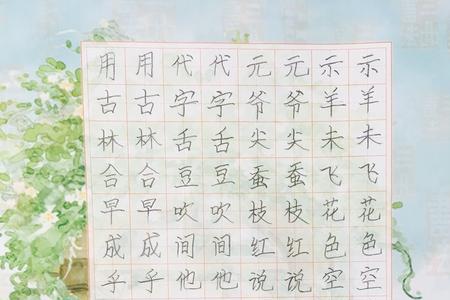 用用代代元元示示
古古字字爷爷羊羊
林林舌舌尖尖未未
合合豆豆蚕蚕飞飞
早早吹吹枝枝花花
成成间间红红色色
乎乎他他说说空空